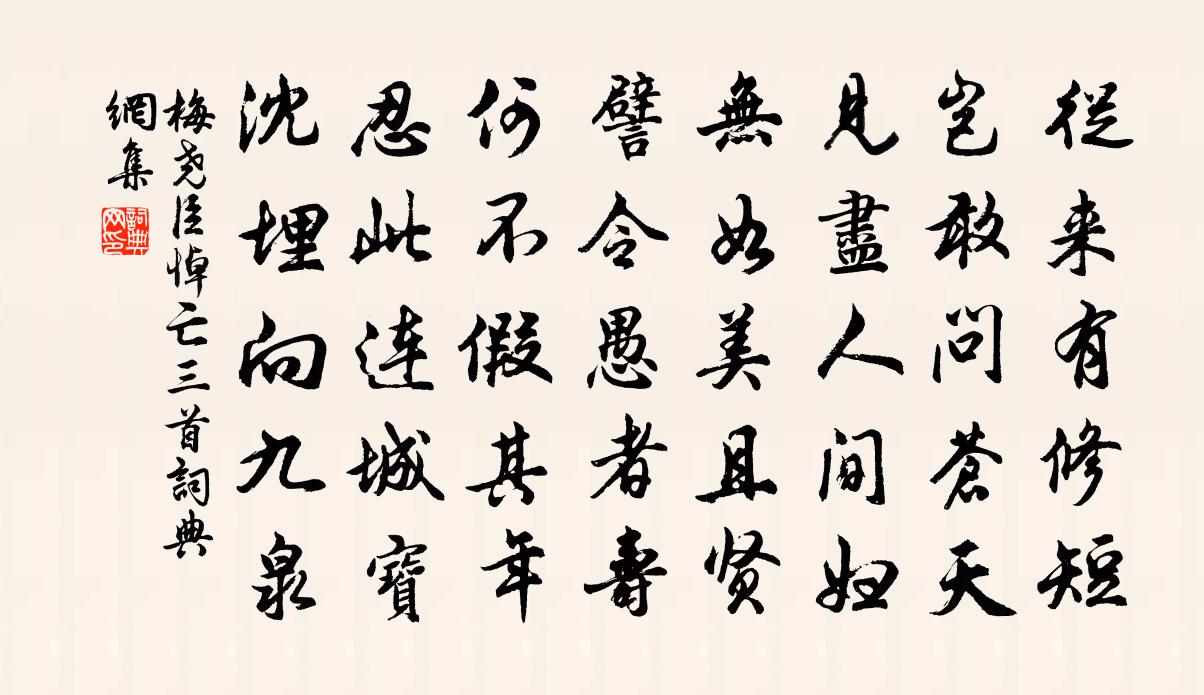 從来有修短
豈敢問蒼天
見盡人間妇
無如美且贤
譬令愚者壽
何不假其年
忍此連城寶
沈埋向九泉
梅尧臣悼亡三首詞典
網集
詞典
网印